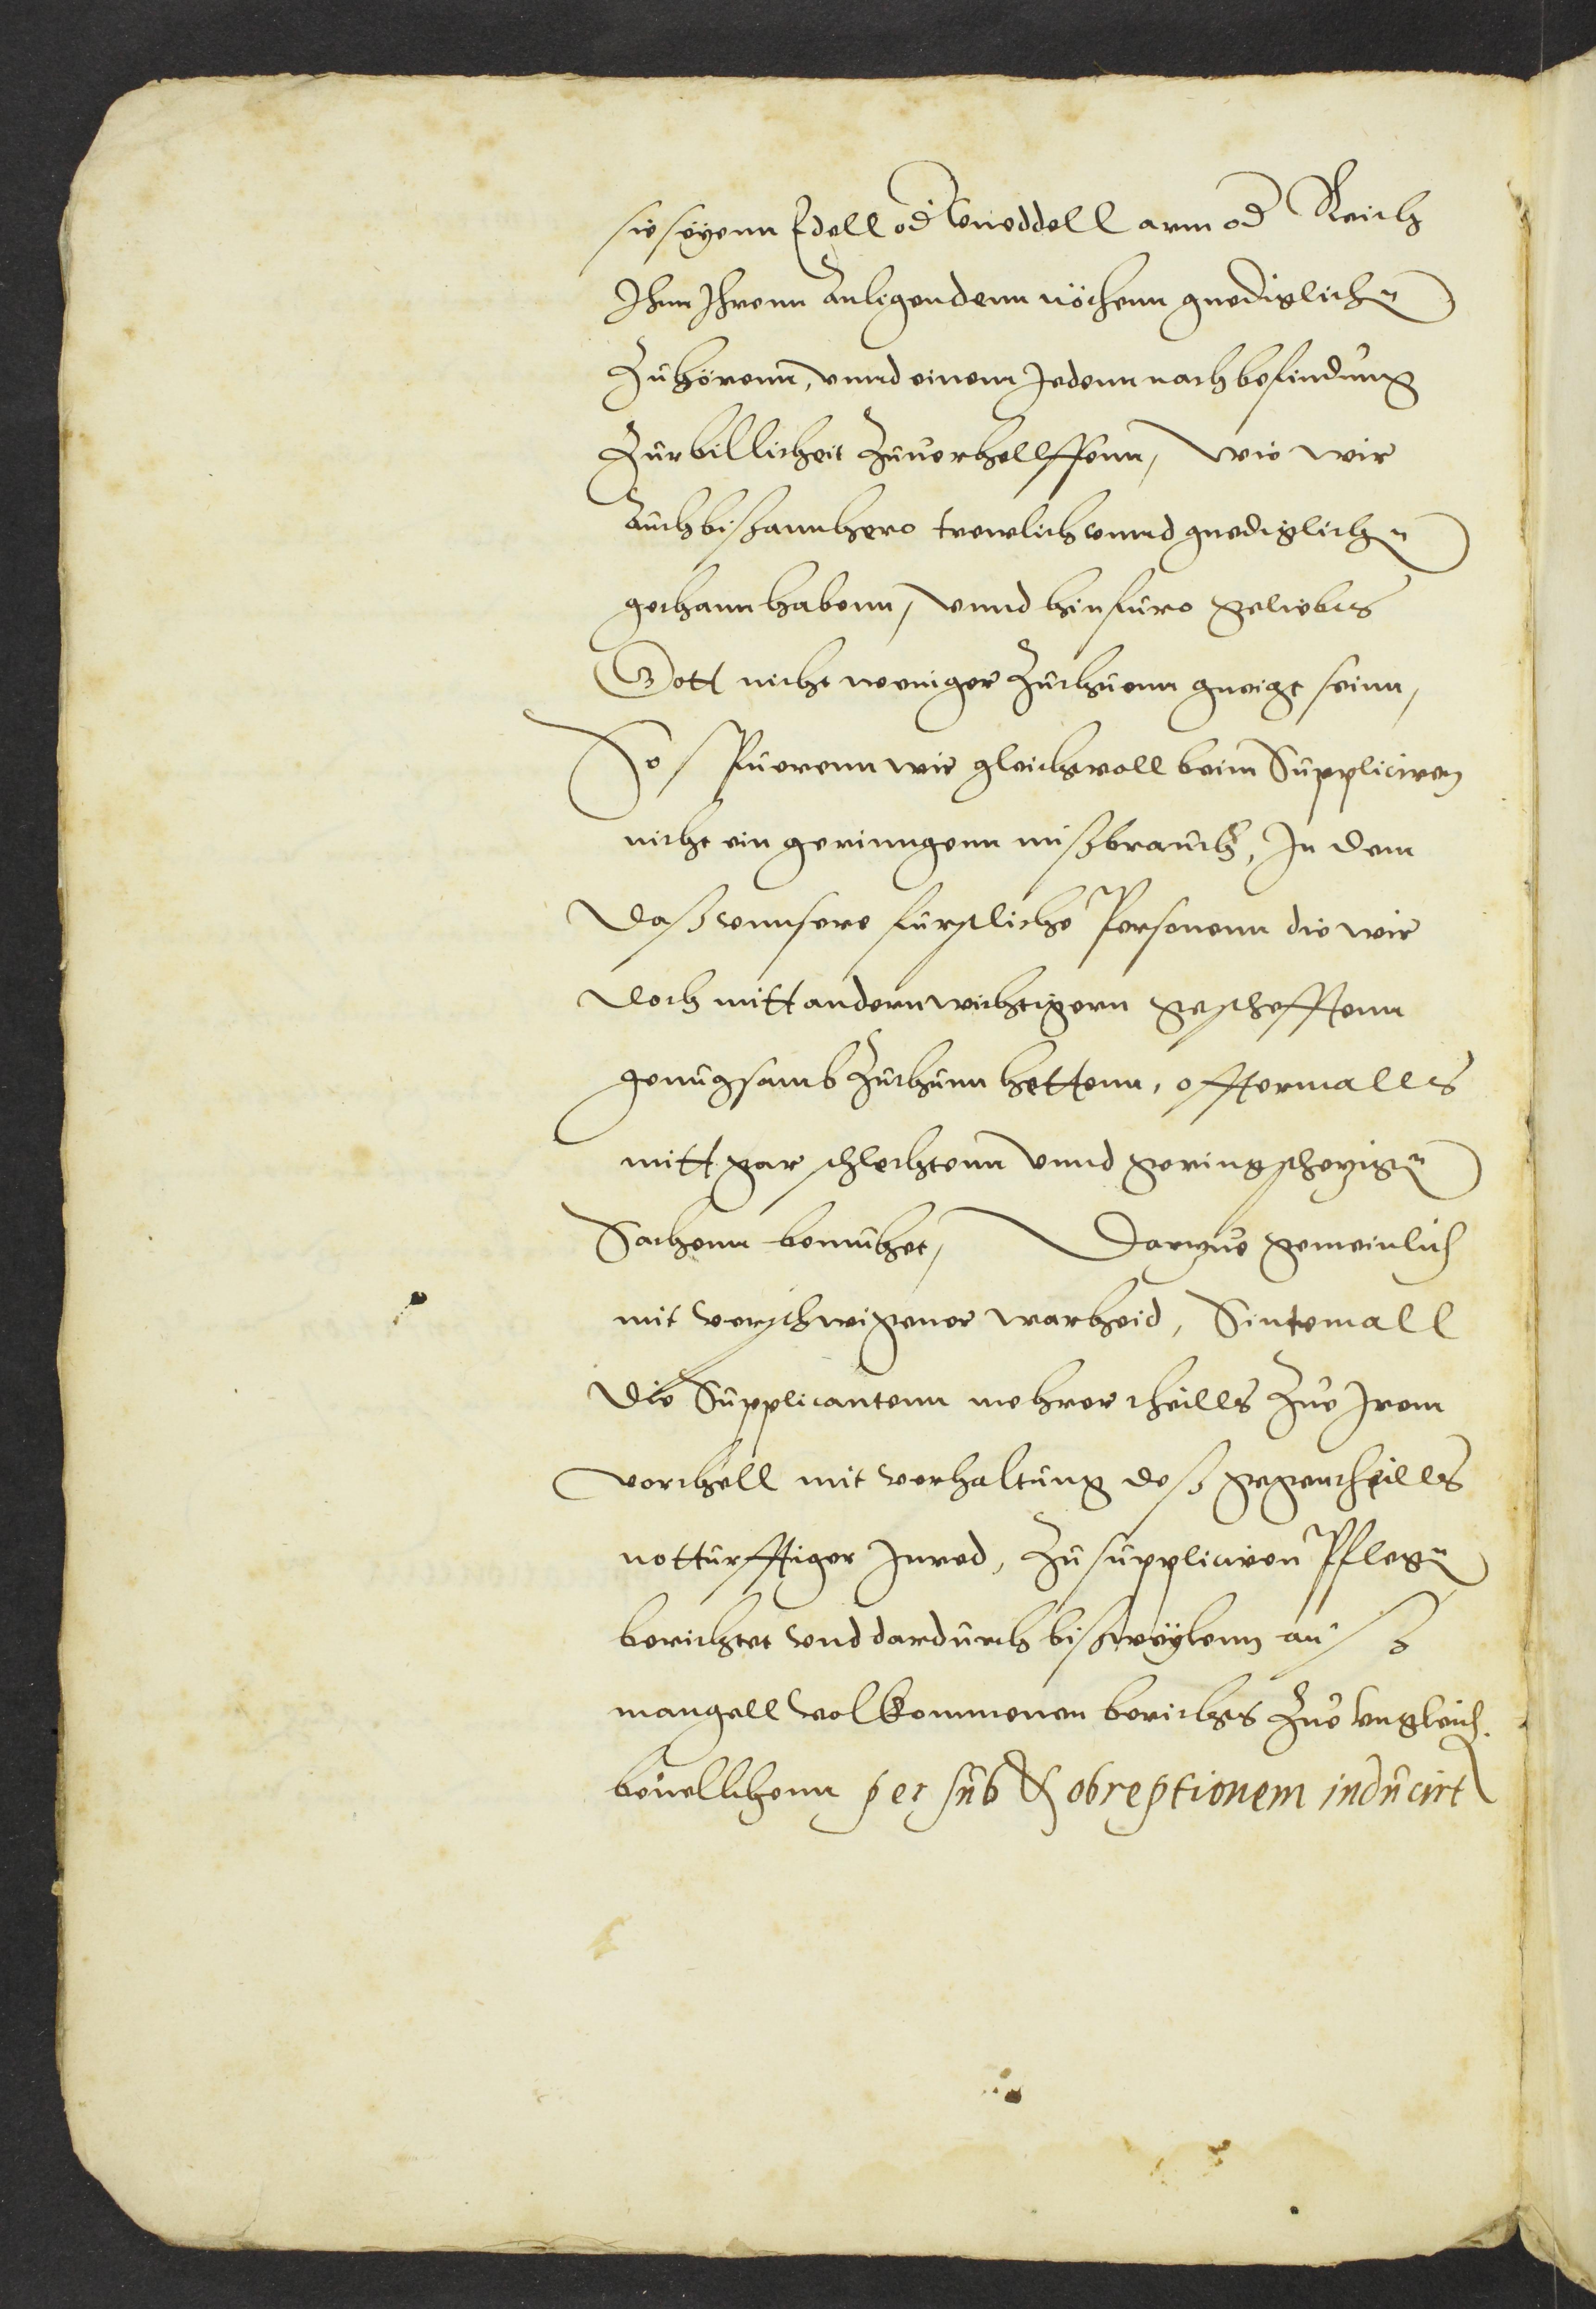 sie seyenn Edell od Uneddell arm od Reich
Ihnn Ihrenn Anligendenn nöthenn gnediglichn
Zuhörenn, unnd einem Jedenn nach befindung
Zur billicheit Zuverhellffenn, Wie wir
Auch bißannhero trewlich unnd gnediglichn
gethann habenn, unnd hinfüro geliebts
Gott nicht weniger Zuthuenn gneigt seinn,
So spuerenn wir gleichwoll beim Suppliciren
nicht ein geringenn mißbrauch, In dem
Daß unnsere fürstliche Personenn die wir
Doch mitt andern wichtigern geschefftenn
genugsamb Zuthunn hettenn, offtermalls
mitt gar schlechtenn unnd geringschezign
Sachenn bemuhet, Darzue gemeinlich
mit verschwigener warheid, Sintemall
Die Supplicantenn mehrer theills Zue Irem
vorthell mit verhaltung deß gegentheills
notturfftiger Inred, Zu suppliciren Pflegn
berichtet und dardurch bißweylenn auß
mangell volkommenen berichts Zue Ungleich.
bevellchenn per sub & obreptionem inducirt